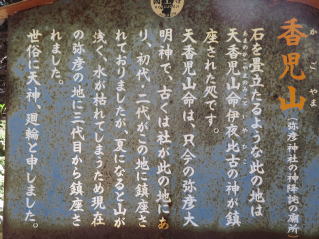 香児山
かごやま
(弥彦神社の神降説の廟所)
石を畳立たるような此の地は
天香児山命伊夜比古の神が鎮
座された処です。
天香児山命は、只今の弥彦大
明神で、古くは社が此の地にあ
り、初代・二代がこの地に鎮座さ
れておりましたが、夏になると山が
浅く、水が枯れてしまうため現在
の弥彦の地に三代目から鎮座さ
れました。
世俗に天神、廻輪と申しました。